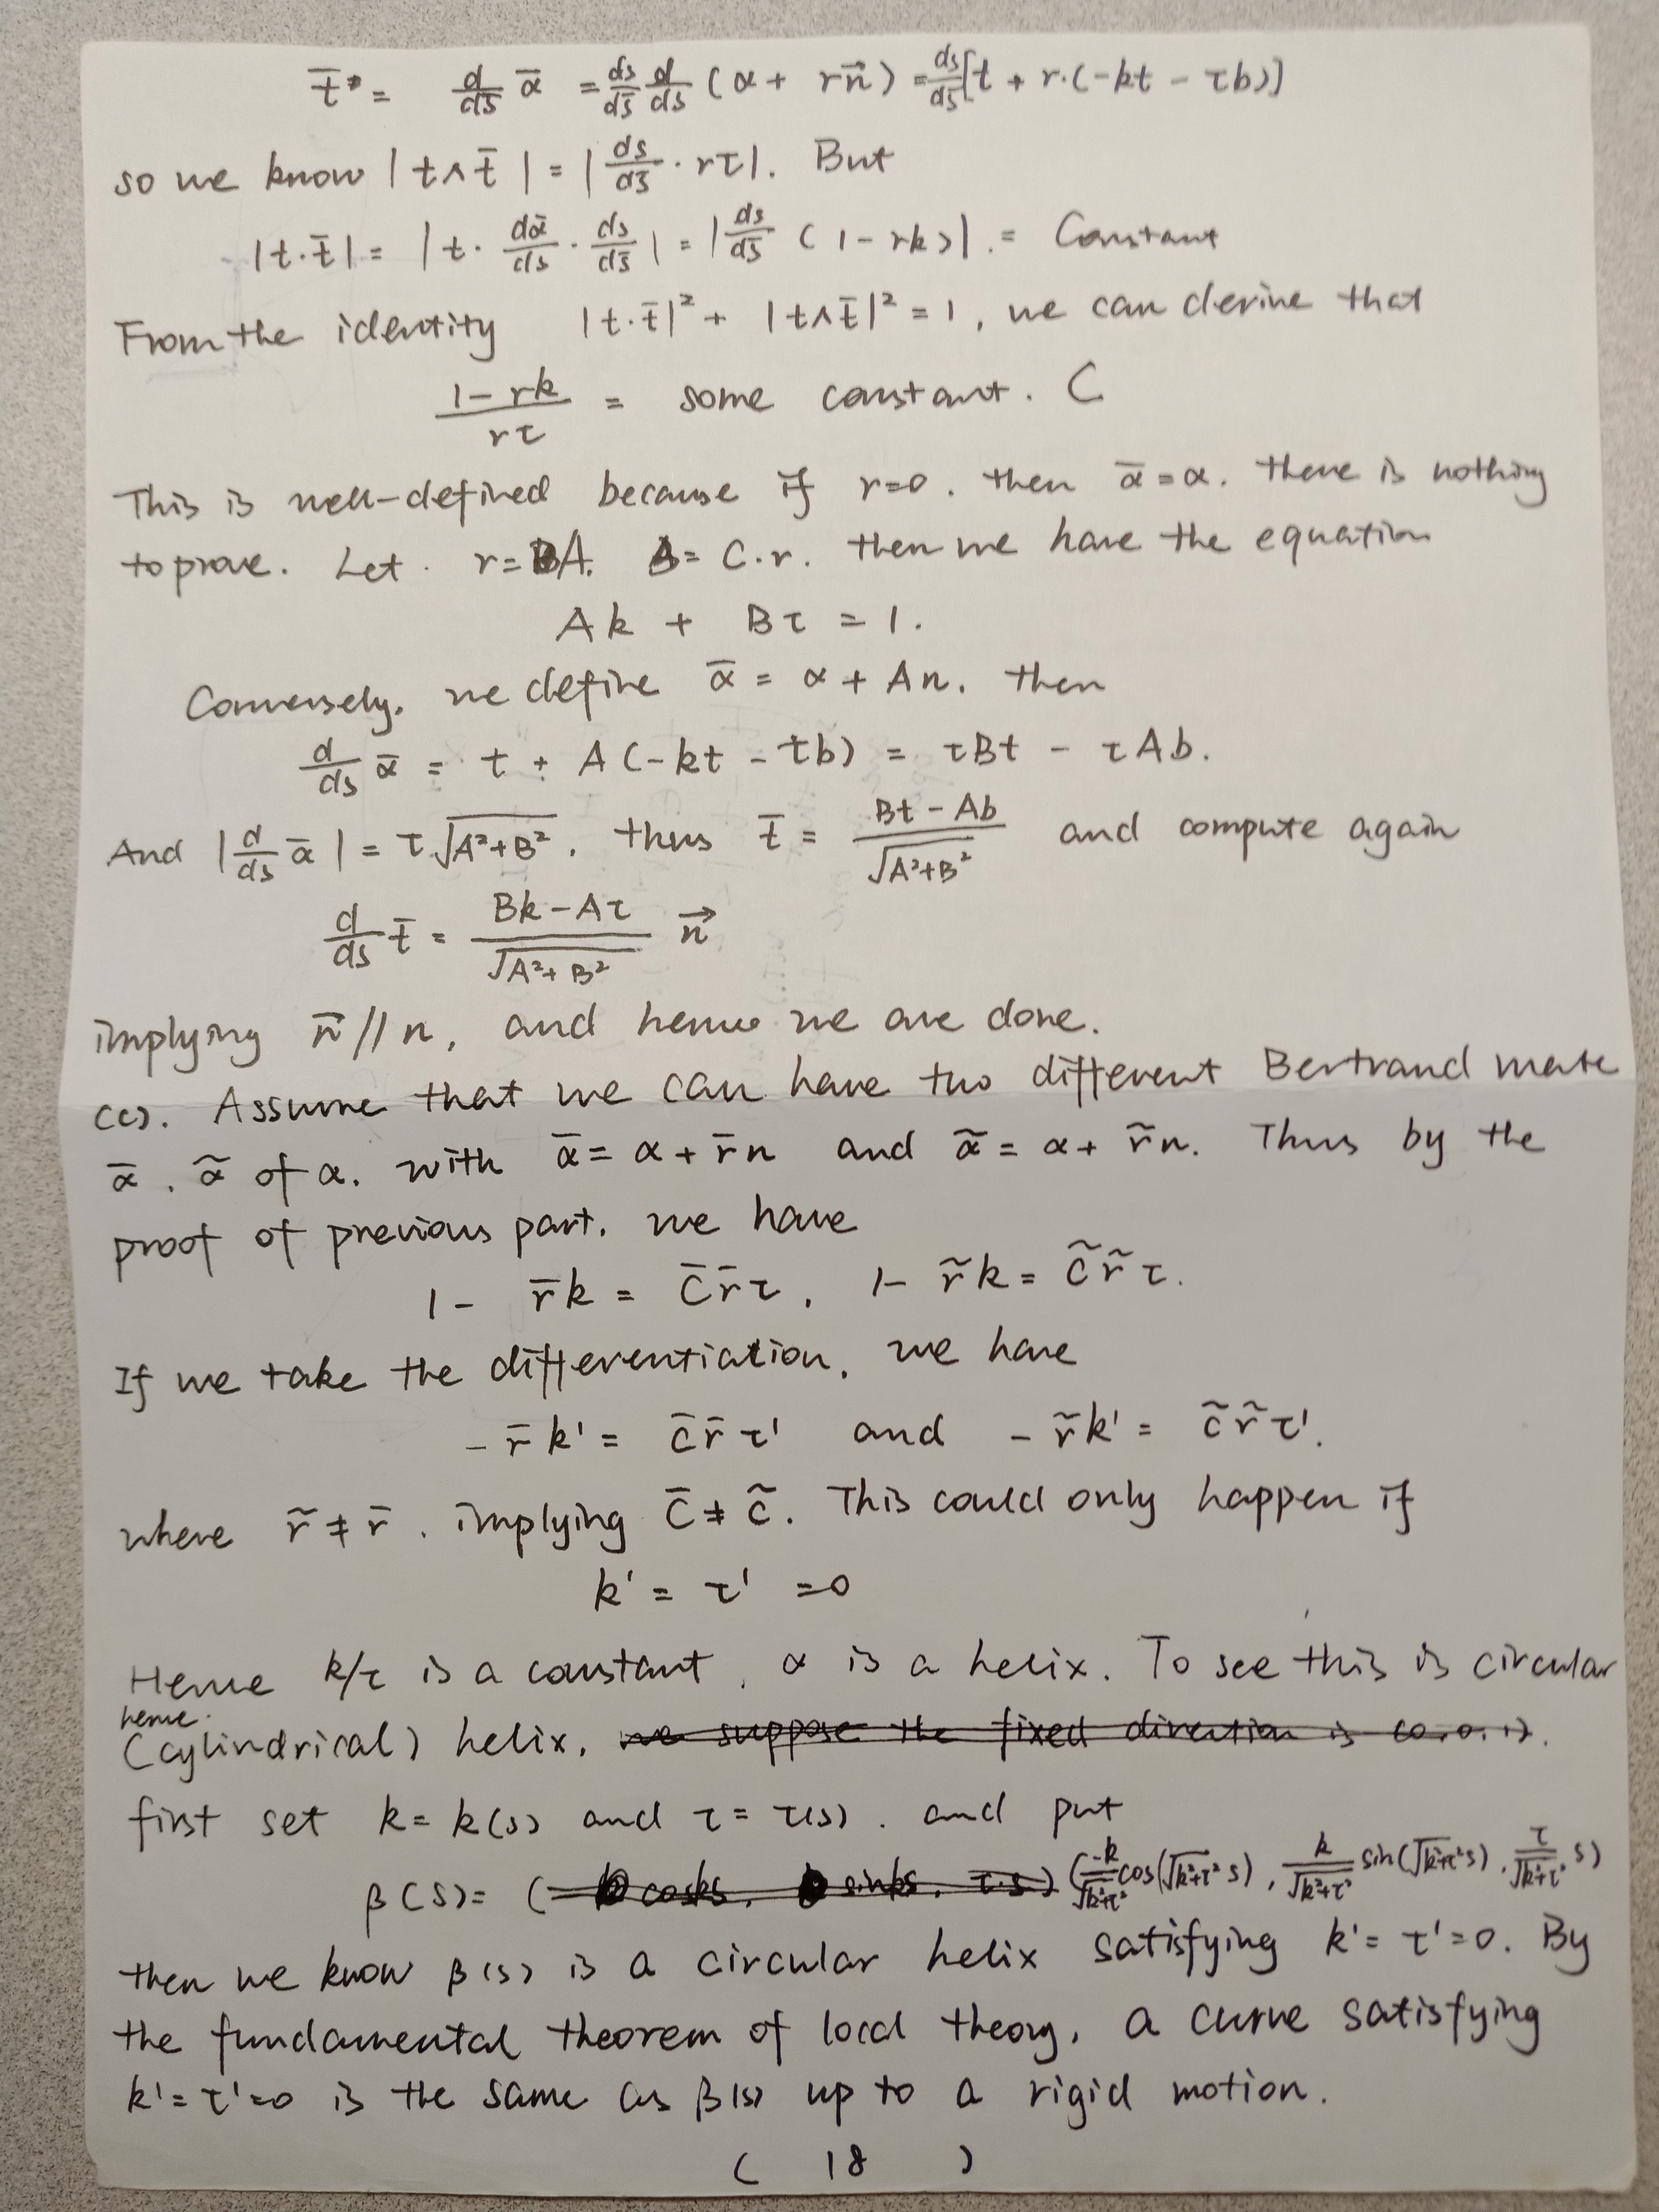 t̄ = d/ds̄ ᾱ = ds/ds̄ d/ds (α + r n⃗) = ds/ds̄ [t + r·(-kt - τb)]
so we know |t∧t̄| = |ds/ds̄ · rτ|. But
|t·t̄| = |t · dᾱ/ds · ds/ds̄| = |ds/ds̄ (1-rk)|. = Constant
From the identity |t·t̄|² + |t∧t̄|² = 1, we can derive that
(1-rk)/(rτ) = some constant. C
This is well-defined because if r=0. then ᾱ=α. there is nothing
to prove. Let. r=A. B= C·r. then we have the equation
Ak + Bτ = 1.
Conversely, we define ᾱ = α + An. then
d/ds ᾱ = t + A(-kt - τb) = τBt - τAb.
And |d/ds ᾱ| = τ√(A²+B²). thus t̄ = (Bt-Ab)/√(A²+B²) and compute again
d/ds t̄ = (Bk-Aτ)/√(A²+B²) n⃗
implying n̄//n, and hence we are done.
(c). Assume that we can have two different Bertrand mate
ᾱ, α̃ of α. with ᾱ = α + r̄n and α̃ = α + r̃n. Thus by the
proof of previous part. we have
1- r̄k = C̄r̄τ, 1- r̃k = C̃r̃τ.
If we take the differentiation, we have
-r̄k' = c̄r̄τ' and -r̃k' = c̃r̃τ'.
where r̃≠r̄. implying C̄≠C̃. This could only happen if
k' = τ' =0
Hence k/τ is a constant, α is a helix. To see this is circular
hence.
(cylindrical) helix. we suppose the fixed direction is (0,0,1).
first set k=k(s) and τ=τ(s). and put
β(s)= (-k/√(k²+τ²) cos(√(k²+τ²) s), k/√(k²+τ²) sin(√(k²+τ²) s), τ/√(k²+τ²) s)
then we know β(s) is a circular helix satisfying k'=τ'=0. By
the fundamental theorem of local theory, a curve satisfying
k'=τ'=0 is the same as β(s) up to a rigid motion.
( 18 )